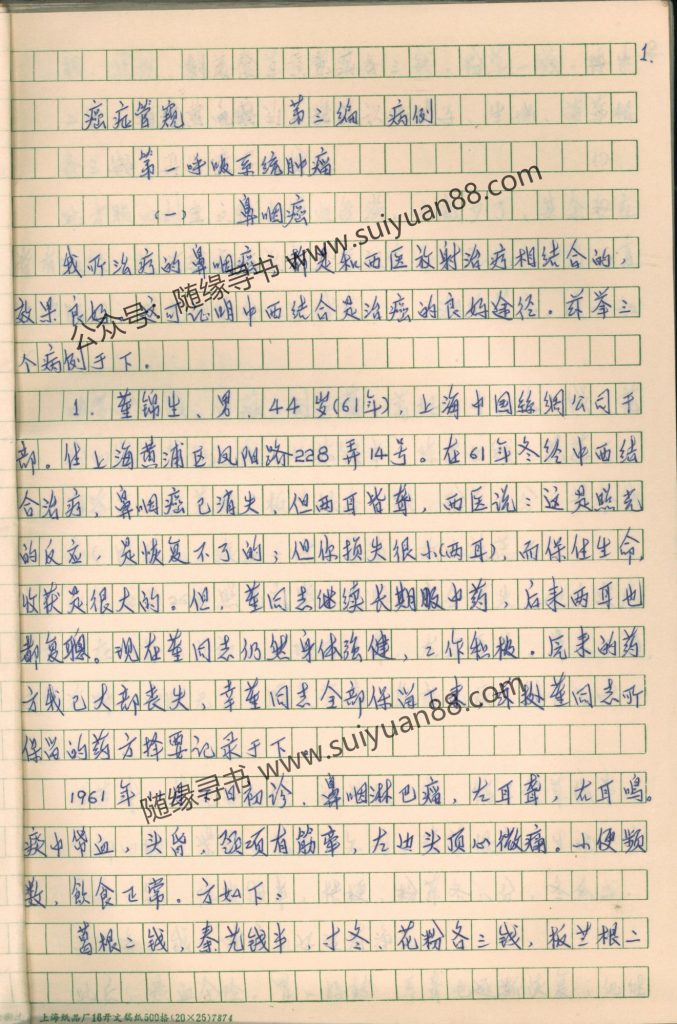 1.
癌症管窥 第三编 病例
第一呼吸系统肿瘤
(一) 鼻咽癌
我所治疗的鼻咽癌，都是和西医放射治疗相结合的，
效果良好，证明中西结合是治癌的良好途径．兹举三
个病例于下．
1．董锦生、男、44岁(61年)，上海中国絲綢公司干
部。住上海黄浦区凤阳路228弄14号。在61年冬经中西结
合治疗，鼻咽癌已消失，但两耳皆聋，西医说：这是照光
的反应，是恢复不了的；但你损失很小(两耳)，而保住生命，
收获是很大的。但，董同志继续长期服中药，后来两耳也
都复聪。现在董同志仍然身体强健，工作积极．原来的药
方我已大部丧失，幸董同志全部保留下来，董同志所
保留的药方择要记录于下．
1961年 日初诊．鼻咽淋巴瘤，左耳聋，右耳鸣。
痰中带血，头昏，颈项有筋牵，左边头顶心微痛。小便频
数，飲食正常．方如下：
葛根二钱，秦艽钱半，寸冬、花粉各三钱，板兰根二
上海纸品厂16开文稿纸500格(20×25)7874
公众号：随缘寻书 www.suiyuan88.com
随缘寻书 www.suiyuan88.com